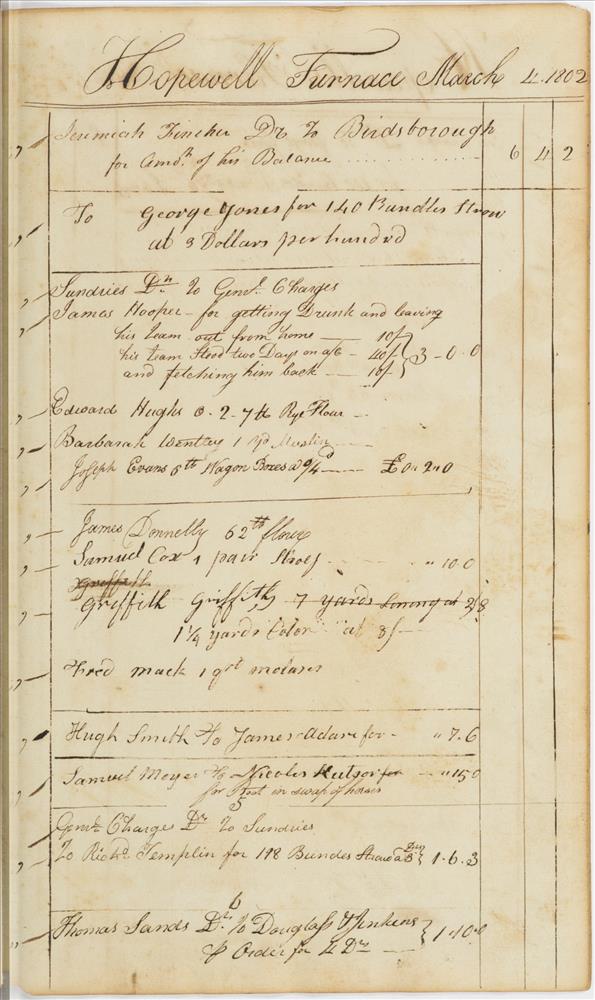 Hopewell Furnace March 4. 1802
Jeremiah Fincher Dr. To Birdsborough
for Amot. of his Balance 6 4 2
To George Jones for 140 Bundles Straw
at 3 Dollars per hundrd
Sundries Dr. To Genl. Charges
James Hooper - for getting Drunk and leaving
his team out from home — 10/-
his team Stood two Days on a/c - 40/- } 3-0.0
and fetching him back — 10/-
Edward Hughs 0.2-7 lb Rye Flour
Barbarah 1 yd Muslin
Joseph Evans 6 lb Wagon Boxes @ 4d £0"2"0
James Donnelly 62 lb flour
Samuel Cox 1 pair Shoes " 10 0
Griffith
Griffith Griffith, 7 yards Linning at 2/8
1¼ yards at 8/-
Fred mack 1 qrt molases
Hugh Smith To James Adare for - " 7.6
Samuel Moyer To Nicolos for - "15 0
for Boot in swap of horses
5
Genl. Charges Dr. To Sundries
To Richd. Templin for 118 Bundes Straw a } 1.6.3
6
Thomas Sands Dr. To Douglass & Jenkins } 1.10.0
℗ Order for 4 Drs